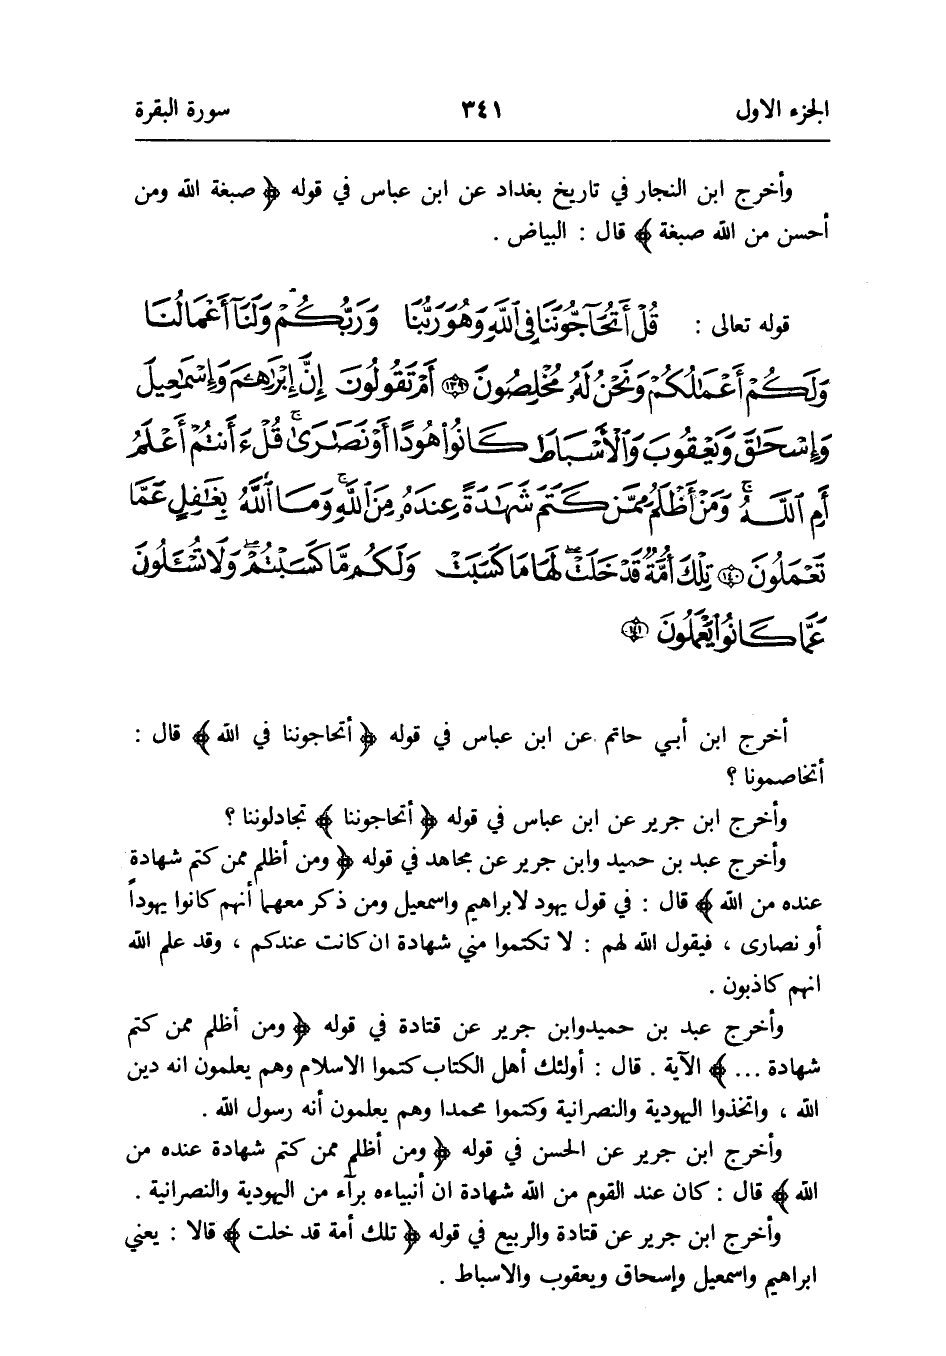 الجزء الاول ٣٤١ سورة البقرة
وأخرج ابن النجار في تاريخ بغداد عن ابن عباس في قوله ﴿ صبغة الله ومن
أحسن من الله صبغة ﴾ قال : البياض .
قوله تعالى : قُلْ أَتُحَآجُّونَنَا فِى ٱللَّهِ وَهُوَ رَبُّنَا وَرَبُّكُمْ وَلَنَآ أَعْمَٰلُنَا
وَلَكُمْ أَعْمَٰلُكُمْ وَنَحْنُ لَهُۥ مُخْلِصُونَ ١٣٩ أَمْ تَقُولُونَ إِنَّ إِبْرَٰهِـۧمَ وَإِسْمَٰعِيلَ
وَإِسْحَٰقَ وَيَعْقُوبَ وَٱلْأَسْبَاطَ كَانُوا۟ هُودًا أَوْ نَصَٰرَىٰ ۗ قُلْ ءَأَنتُمْ أَعْلَمُ
أَمِ ٱللَّهُ ۗ وَمَنْ أَظْلَمُ مِمَّن كَتَمَ شَهَٰدَةً عِندَهُۥ مِنَ ٱللَّهِ ۗ وَمَا ٱللَّهُ بِغَٰفِلٍ عَمَّا
تَعْمَلُونَ ١٤٠ تِلْكَ أُمَّةٌ قَدْ خَلَتْ ۖ لَهَا مَا كَسَبَتْ وَلَكُم مَّا كَسَبْتُمْ ۖ وَلَا تُسْـَٔلُونَ
عَمَّا كَانُوا۟ يَعْمَلُونَ ١٤١
أخرج ابن أبي حاتم عن ابن عباس في قوله ﴿ أتحاجوننا في الله ﴾ قال :
أتخاصمونا ؟
وأخرج ابن جرير عن ابن عباس في قوله ﴿ أتحاجوننا ﴾ تجادلوننا ؟
وأخرج عبد بن حميد وابن جرير عن مجاهد في قوله ﴿ ومن أظلم ممن كتم شهادة
عنده من الله ﴾ قال : في قول يهود لابراهيم واسمعيل ومن ذكر معهما أنهم كانوا يهوداً
أو نصارى ، فيقول الله لهم : لا تكتموا مني شهادة ان كانت عندكم ، وقد علم الله
انهم كاذبون .
وأخرج عبد بن حميدوابن جرير عن قتادة في قوله ﴿ ومن أظلم ممن كتم
شهادة ... ﴾ الآية . قال : أولئك أهل الكتاب كتموا الاسلام وهم يعلمون انه دين
الله ، واتخذوا اليهودية والنصرانية وكتموا محمدا وهم يعلمون أنه رسول الله .
وأخرج ابن جرير عن الحسن في قوله ﴿ ومن أظلم ممن كتم شهادة عنده من
الله ﴾ قال : كان عند القوم من الله شهادة ان أنبياءه برآء من اليهودية والنصرانية .
وأخرج ابن جرير عن قتادة والربيع في قوله ﴿ تلك أمة قد خلت ﴾ قالا : يعني
ابراهيم واسمعيل وإسحاق ويعقوب والاسباط .